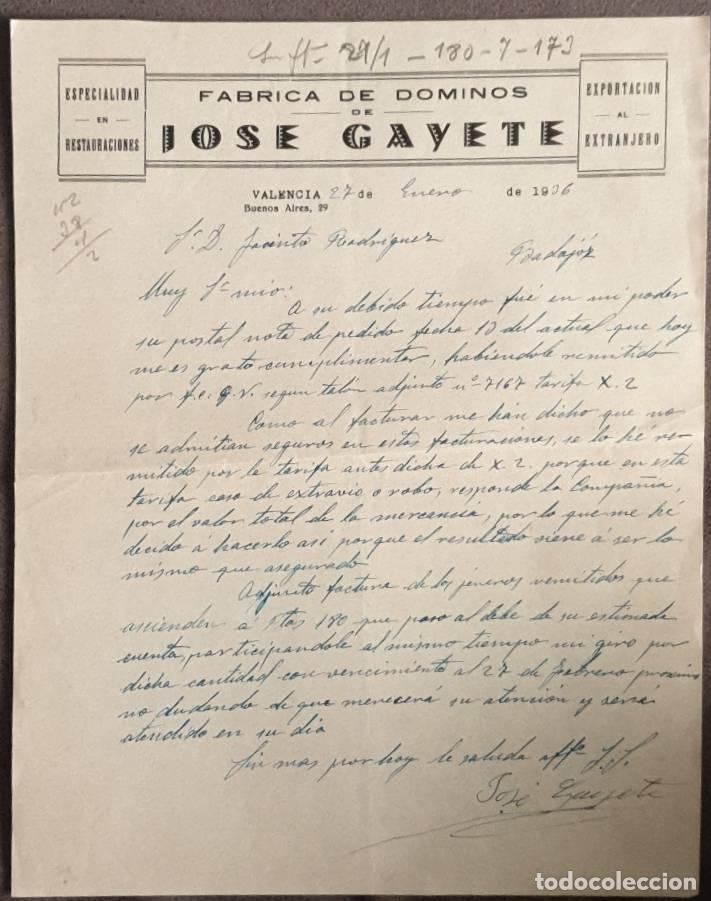 29/1 - 180-7-173
ESPECIALIDAD
EN
RESTAURACIONES
FABRICA DE DOMINOS
DE
JOSE GAYETE
EXPORTACION
AL
EXTRANJERO
VALENCIA 27 de Enero de 1936
Buenos Aires, 29
Sr. D. Jacinto Rodriguez
Badajóz
Muy Sr mio:
A su debido tiempo fué en mi poder
su postal nota de pedido fecha 13 del actual que hoy
me es grato cumplimentar, habiendole remitido
por f.c. G.V. segun talón adjunto nº 7167 tarifa X. 2
Como al facturar me han dicho que no
se admitian seguros en estas facturaciones, se lo hé re-
mitido por la tarifa antes dicha de X. 2. porque en esta
tarifa caso de extravio o robo, responde la Compañia,
por el valor total de la mercancia, por lo que me hé
decido á hacerlo asi porque el resultado viene á ser lo
mismo que asegurado
Adjunto factura de los jéneros remitidos que
ascienden á Ptas 180 que paso al debe de su estimada
cuenta, participandole al mismo tiempo mi giro por
dicha cantidad con vencimiento al 27 de Febrero proximo
no dudando de que merecerá su atención y será
atendido en su dia
Sin mas por hoy le saluda affº S.S.
José Gayete
todocoleccion